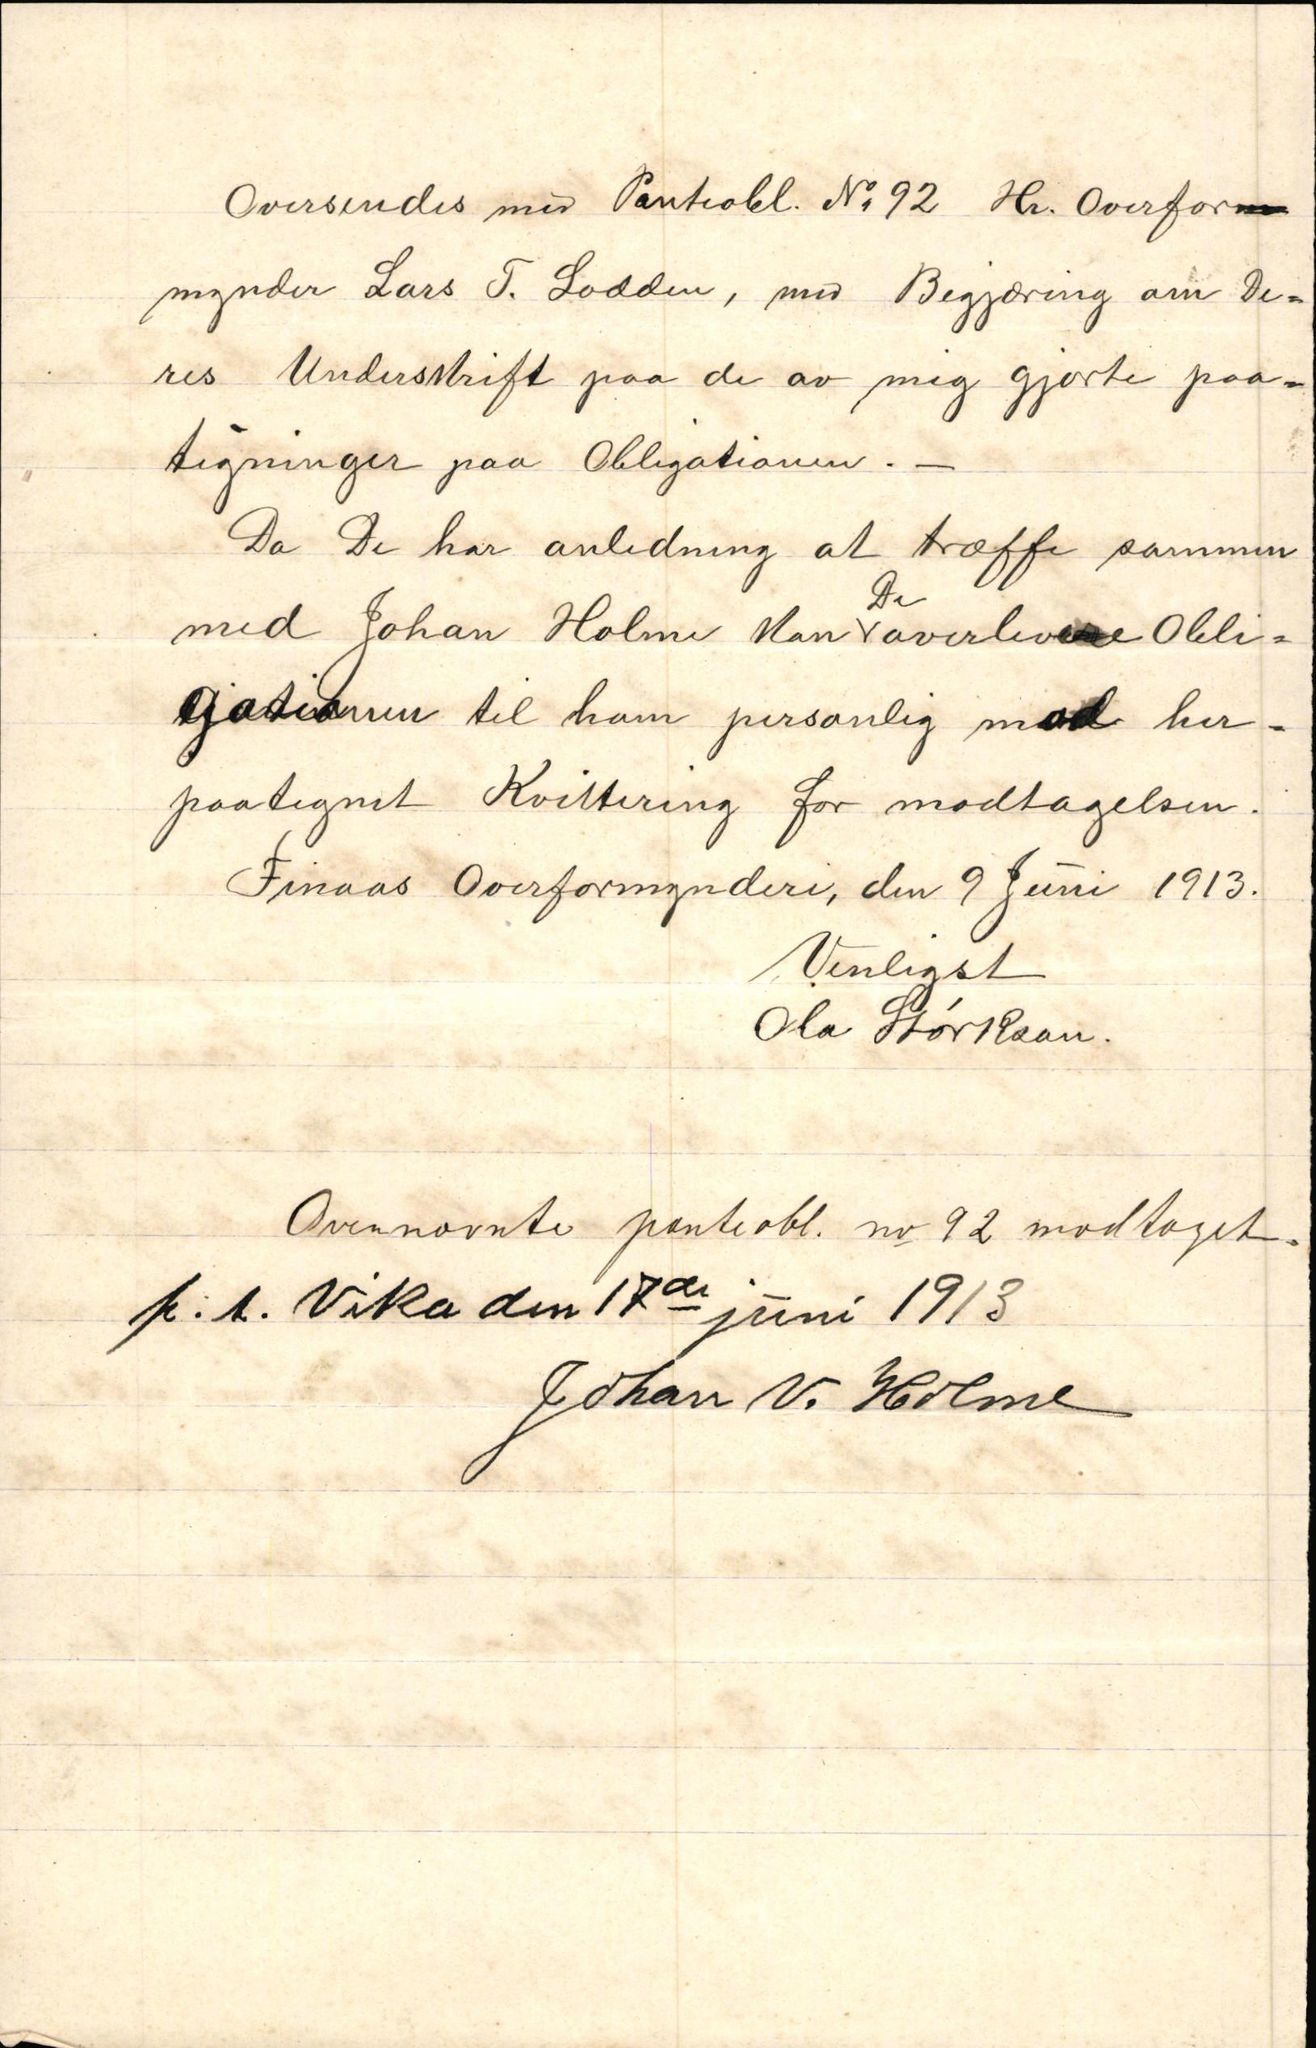 Oversendes med Panteobl. No. 92 Hr. Overfor
mynder Lars T. Lodden, med Begjæring om De=
res Underskrift paa de av mig gjorte paa=
tegninger paa Obligationen. —
Da De har anledning at træffe sammen
med Johan Holme kan De overlevere Obli=
gationen til ham personlig mod her=
paategnet Kvittering for modtagelsen.
Finaas Overformynderi, den 9 Juni 1913.
Venligst
Ola Størkson.
Ovennævnte panteobl. no 92 modtaget.
p. t. Vika den 17de juni 1913
Johan V. Holme